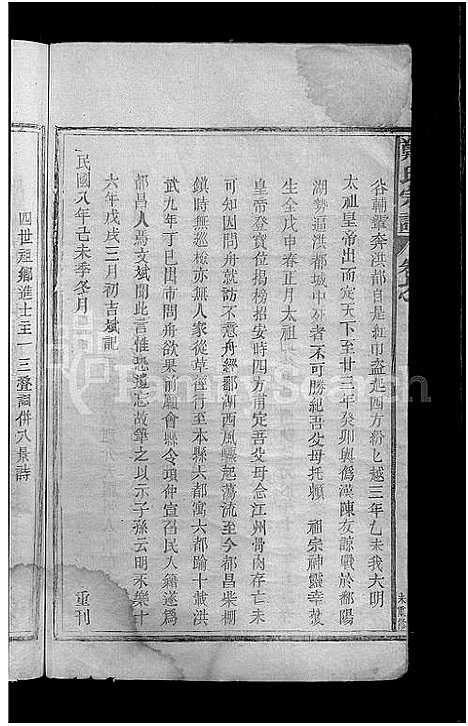 谷輔輩奔洪都自是紅巾盜起四方紛乚越三年乙未我大明
太祖皇帝出而定天下至廿三年癸卯與僞漢陳友諒戰於鄱陽
湖勢逼洪都城中死者不可勝紀吾父母托賴 祖宗神靈幸獲
生全戊申春正月太祖
皇帝登寶位揭榜招安時四方甫定吾父母念江州骨肉存亡未
可知因問舟就訪不意舟經鄱湖西風驟起蕩流至今都昌柴棚
鎮時無巡檢亦無人家從草徑行至本縣六都寓六都踰十載洪
武九年丁巳田市問舟欲果前願會縣令項仲宣召民入籍遂爲
都昌人馬文斌聞此言惟恐遺忘故筆之以示子孫云明禾樂十
六年戊戌三月初吉斌記
民國八年己未季冬月 重刊
四世祖鄉進士至一三登詞併八景詩
鄭氏宗譜
未重修
FamilySearch